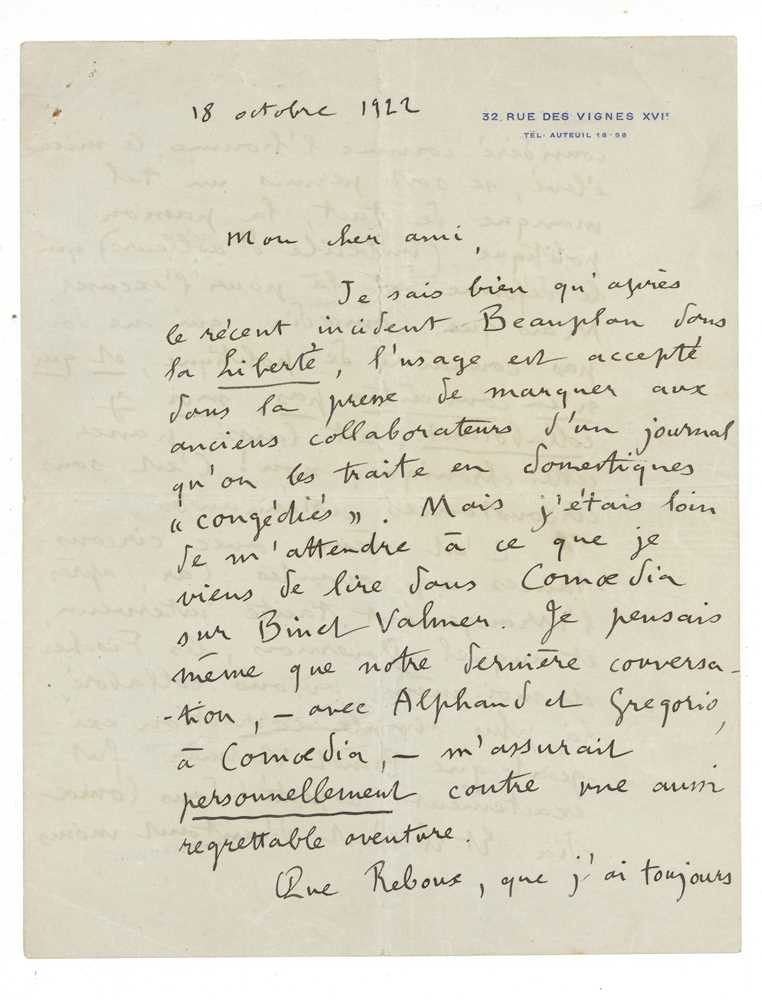 18 octobre 1922
32, RUE DES VIGNES XVIᵉ
TÉL. AUTEUIL 18-98
Mon cher ami,
Je sais bien qu'après
le récent incident Beauplan dans
la Liberté, l'usage est accepté
dans la presse de marquer aux
anciens collaborateurs d'un journal
qu'on les traite en domestiques
"congédiés". Mais j'étais loin
de m'attendre à ce que je
viens de lire dans Comœdia
sur Binet Valmer. Je pensais
même que notre dernière conversa-
-tion, – avec Alphand et Gregorio,
à Comœdia, – m'assurait
personnellement contre une aussi
regrettable aventure.
Que Reboux, que j'ai toujours